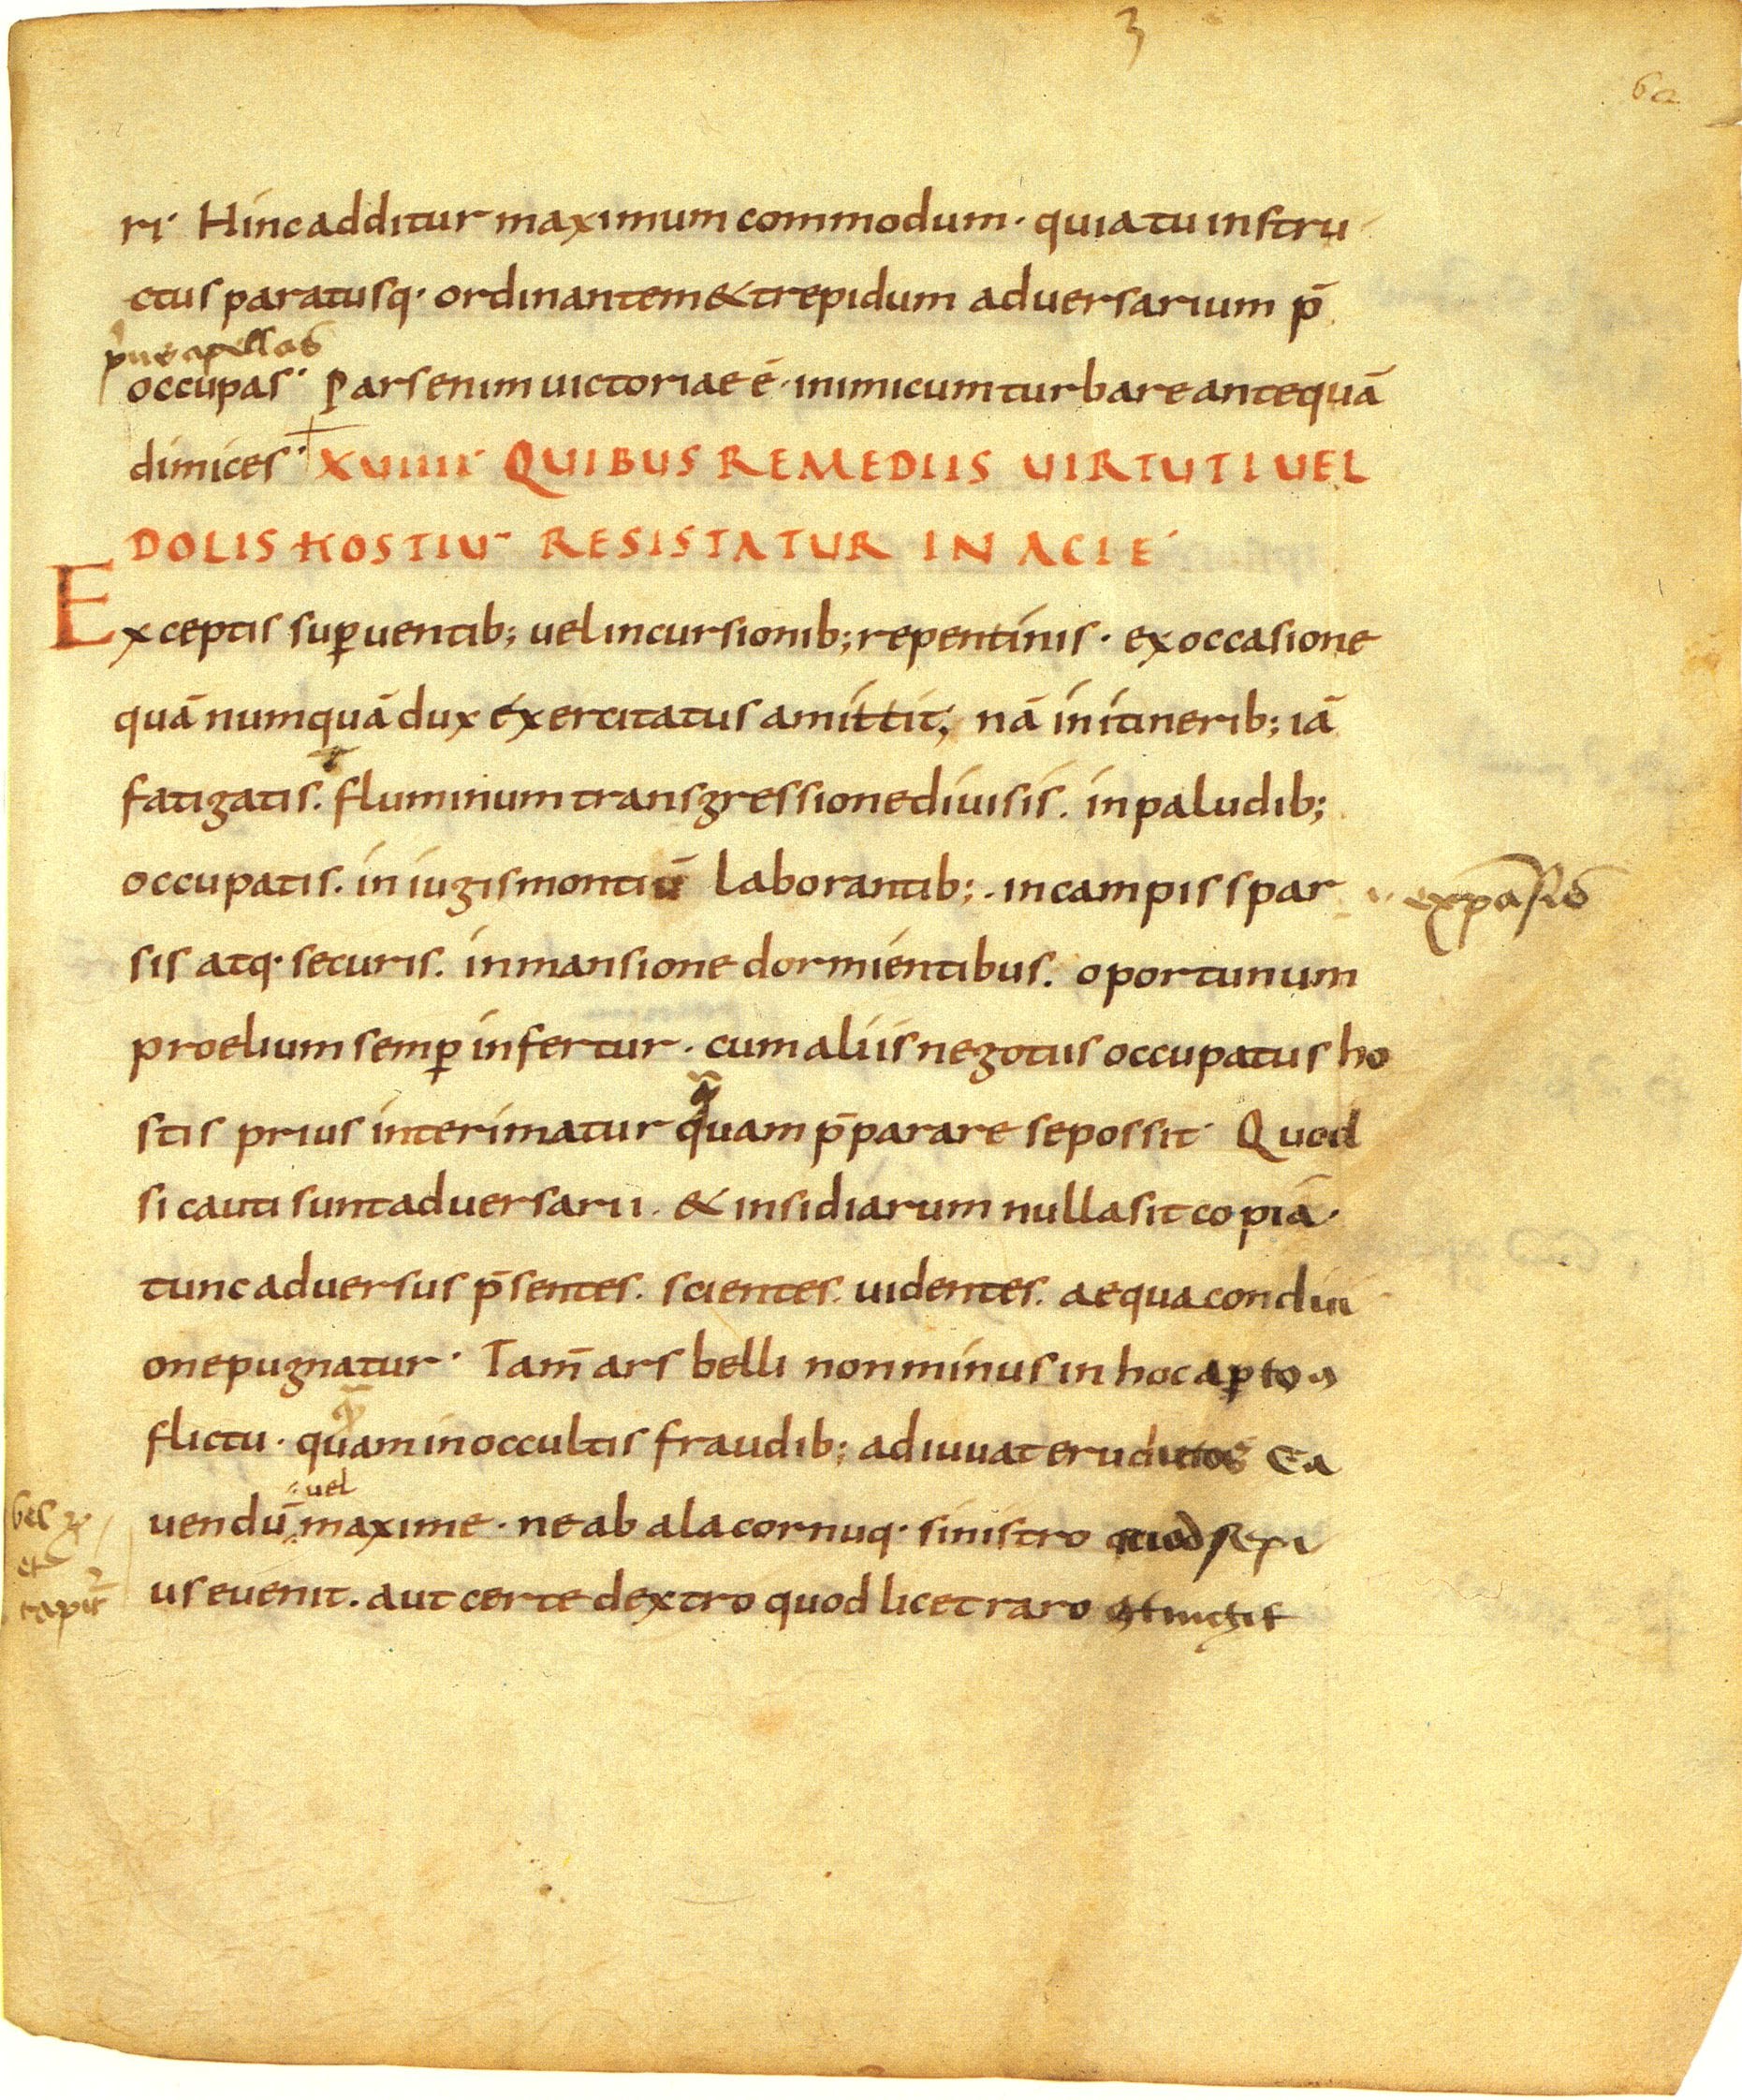 3
60
ri· Hinc additur maximum commodum· quia tu instru
ctus paratusq· ordinantem & trepidum aduersarium p̄
occupas· Pars enim uictoriae ē· inimicum turbare antequā
dimices· XVIIII· QUIBUS REMEDIIS UIRTUTI UEL
DOLIS HOSTIŪ RESISTATUR IN ACIE·
Exceptis suꝑuentib; uel incursionib; repentinis· ex occasione
quā numquā dux exercitatus amittit; nā in itinerib; iā
fatigatis. fluminum transgressione diuisis. in paludib;
occupatis. in iugis montiū laborantib;. in campis spar
sis atq· securis. in mansione dormientibus. oportunum
proelium semꝑ infertur. cum aliis negotiis occupatus ho
stis prius interimatur quam p̄parare se possit· Quod
si cauti sunt aduersarii. & insidiarum nulla sit copia·
tunc aduersus p̄sentes. scientes. uidentes. aequa conditi
one pugnatur· Tam̄ ars belli non minus in hoc aꝑto ꝯ
flictu· quam in occultis fraudib; adiuuat eruditos Ca
uel
uendū maxime· ne ab ala cornuq· sinistro quod sepi
us euenit. aut certe dextro quod licet raro ꝯtingit